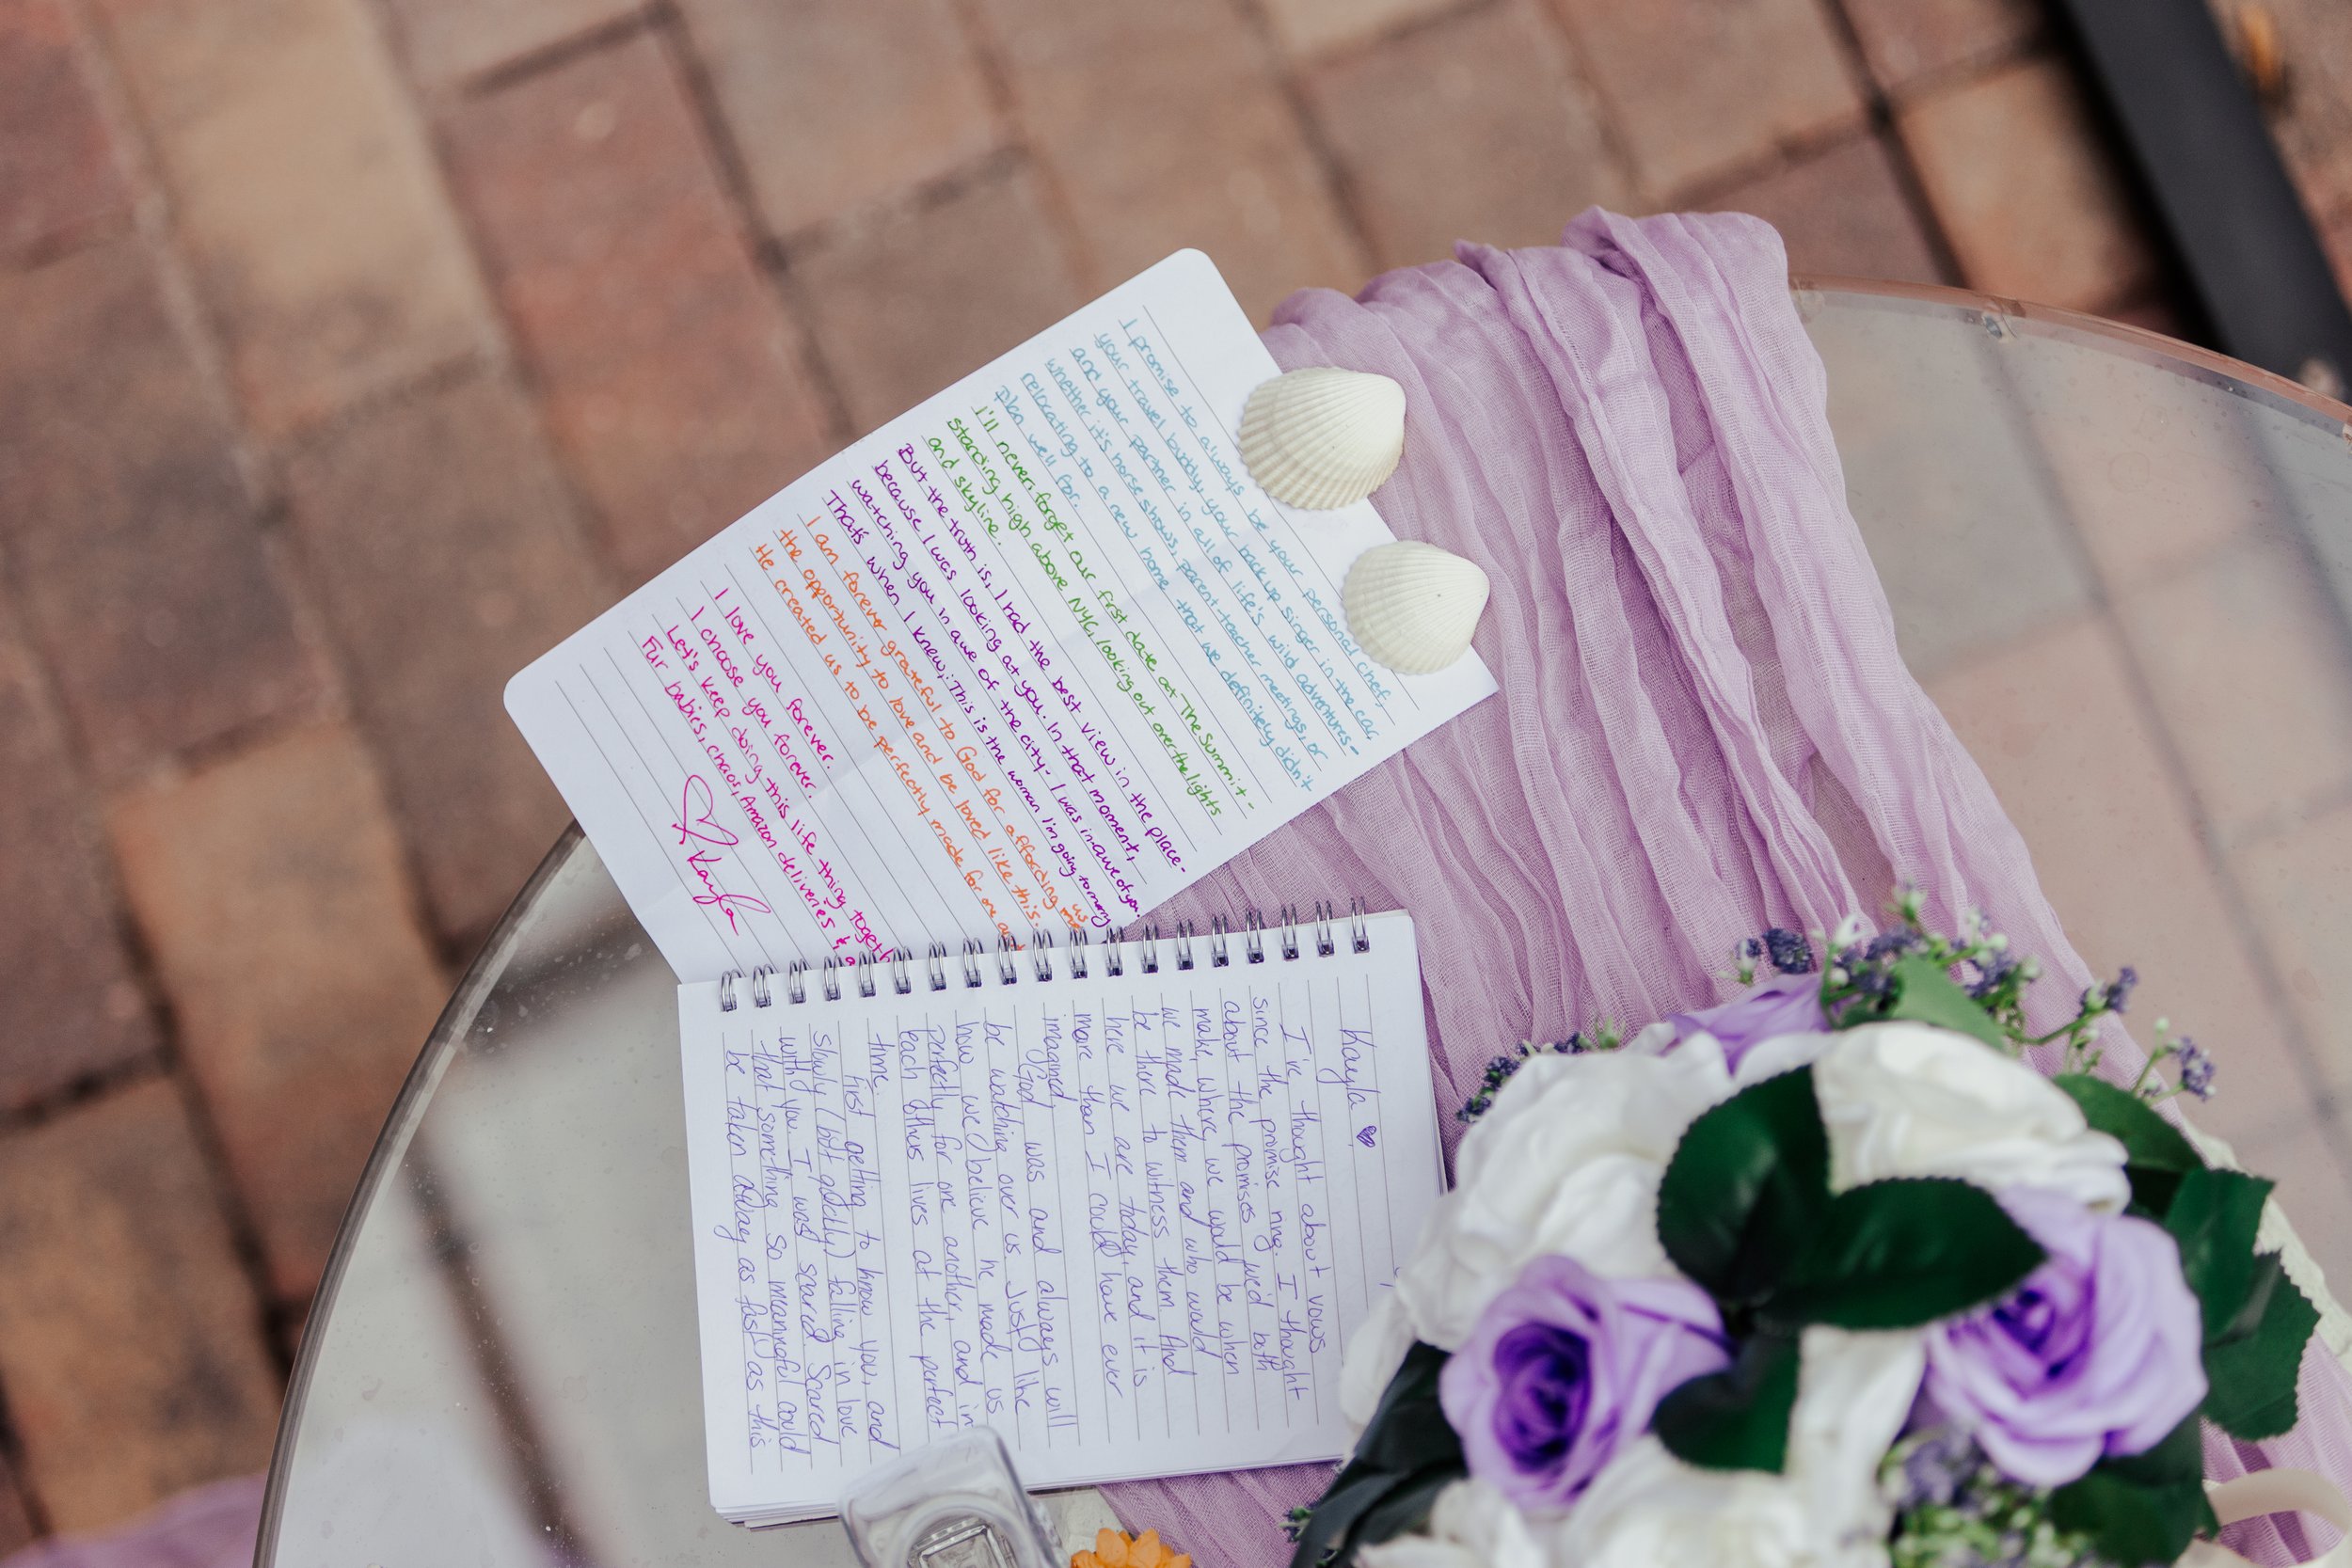 I promise to always be your personal chef,
your travel buddy, your back up singer in the car
and your partner in all of life's wild adventures-
whether it's horse shows, parent-teacher meetings, or
relocating to a new home that we definitely didn't
plan well for.
I'll never forget our first date at The Summit-
standing high above NYC, looking out over the lights
and skyline.
But the truth is, I had the best view in the place-
because I was looking at you. In that moment,
watching you in awe of the city- I was in awe of you.
That's when I knew: This is the woman I'm going to marry
I am forever grateful to God for affording me
the opportunity to love and be loved like this.
He created us to be perfectly made for one
us
I love you forever.
I choose you forever.
Let's keep doing this life thing
Fur babies, chaos, Amazon deliveries &
Kayla
Kayla ♥
I've thought about vows
since the promise ring. I thought
about the promises we'd both
make, where we would be when
we made them and who would
be there to witness them. And
here we are today, and it is
more than I could have ever
imagined.
God was and always will
be watching over us. Just like
how we believe he made us
perfectly for one another, and in
each others lives at the perfect
time.
First getting to know you, and
slowly (but quickly) falling in love
with you. I was scared. Scared
that something so meaningful could
be taken away as fast as this